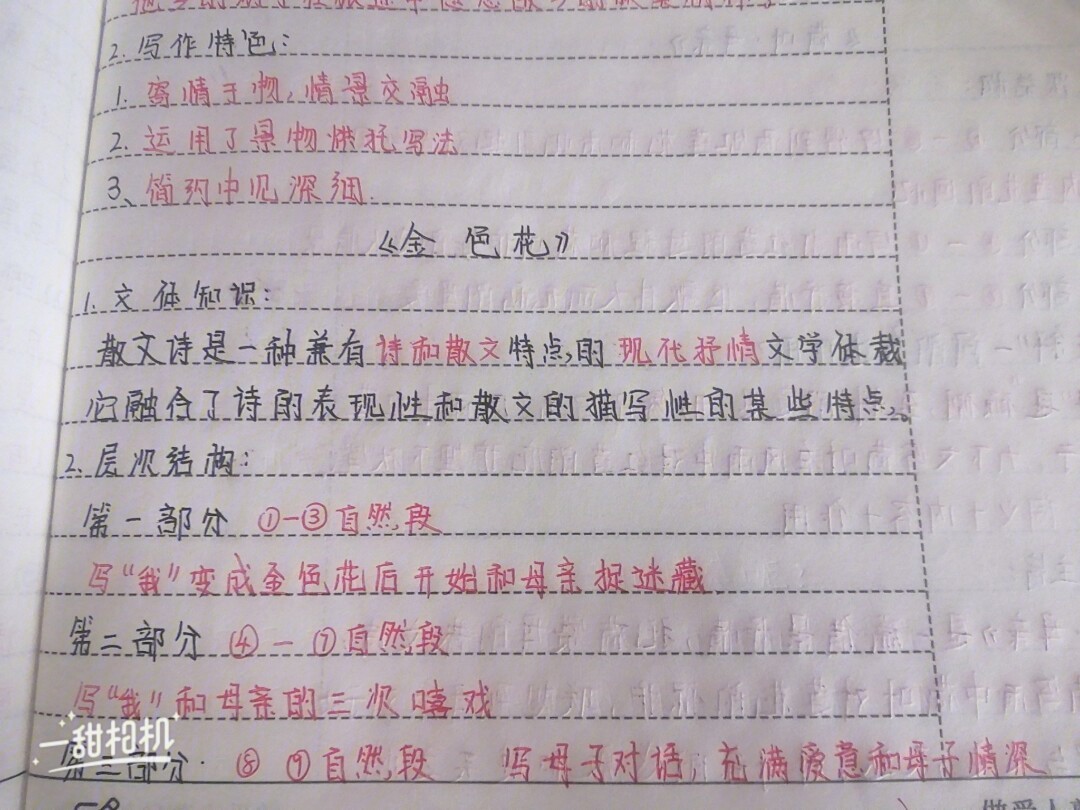 2.写作特色:
1. 寄情于物,情景交融
2. 运用了景物烘托写法
3、简约中见深细.
《金色花》
1.文体知识:
散文诗是一种兼有诗和散文特点的现代抒情文学体裁
它融合了诗的表现性和散文的描写性的某些特点。
2.层次结构:
第一部分 ①—③自然段
写“我”变成金色花后开始和母亲捉迷藏.
第二部分 ④—⑦自然段
写“我”和母亲的三次嘻戏
第三部分. ⑧ ⑨自然段 写母子对话,充满爱意和母子情深
一甜相机